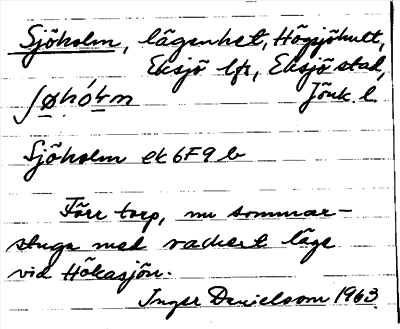 Sjöholm, lägenhet, Högsjöhult,
Eksjö lfs, Eksjö stad,
Jönk. l.
Sjöholm ek 6F9 b
Förr torp, nu sommar-
stuga med vackert läge
vid Hökasjön.
Inger Danielsson 1963